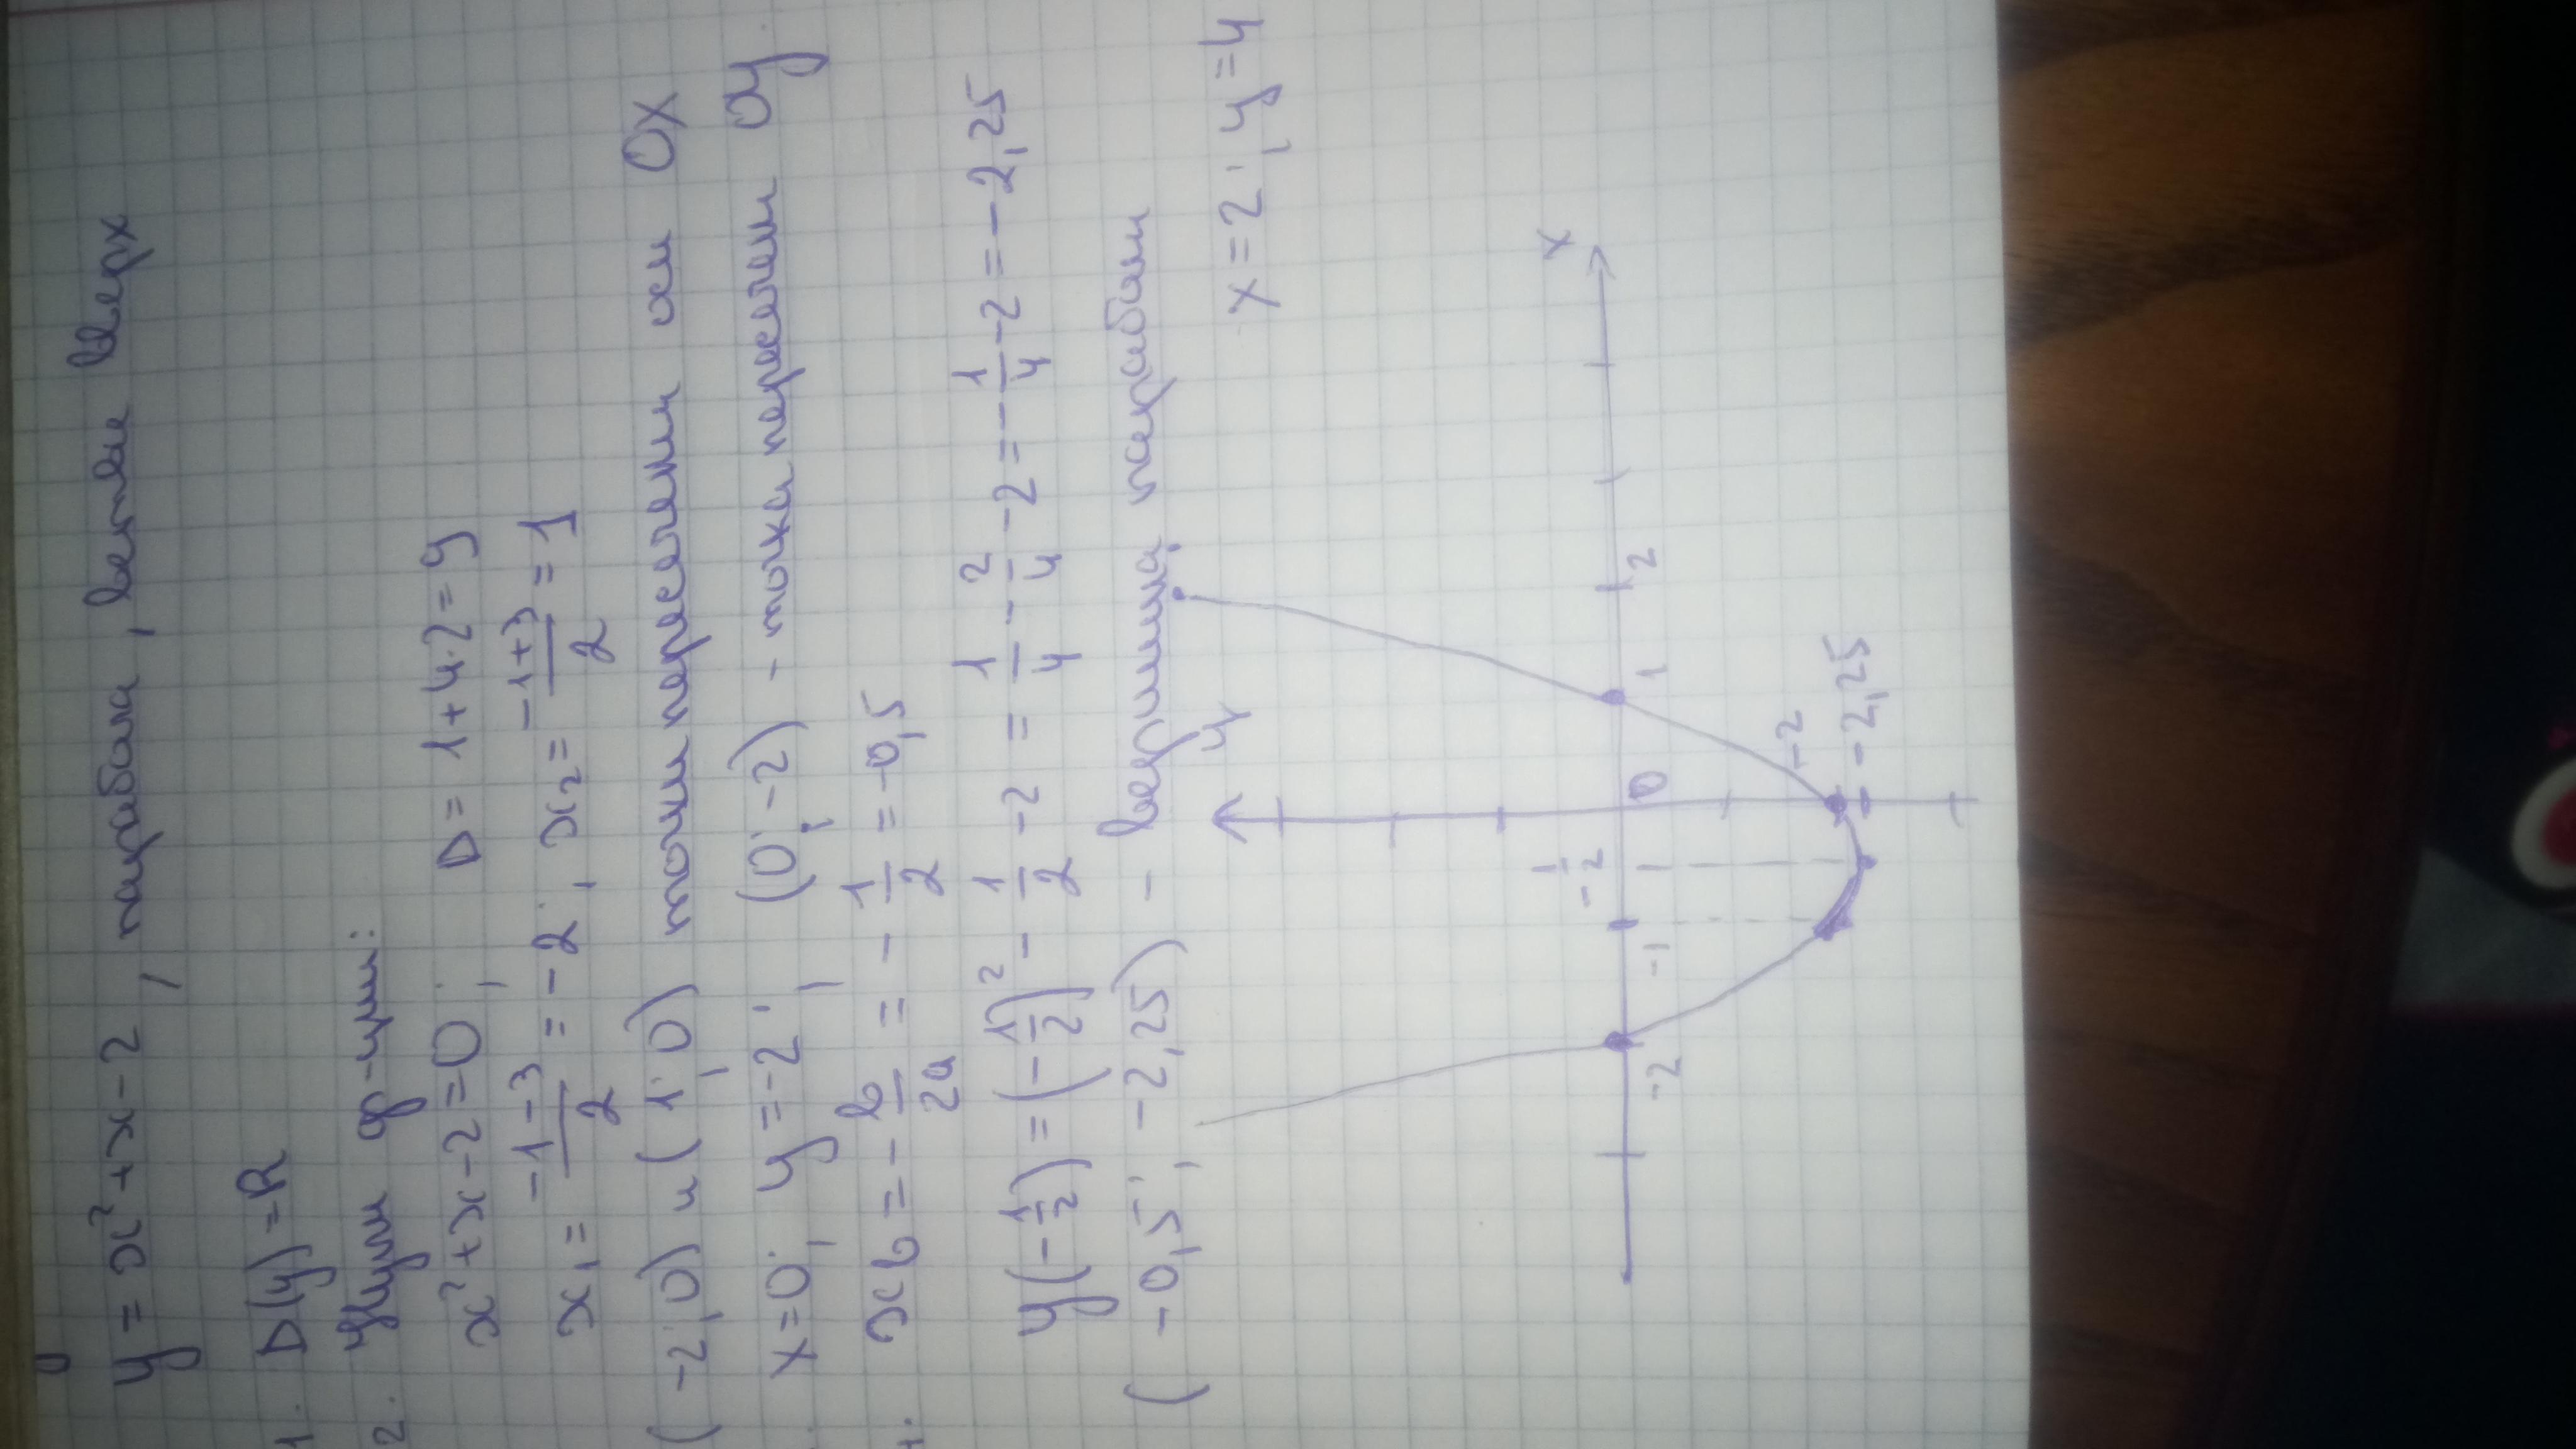 y = x² + x - 2, парабола, ветви вверх
1. D(y) = R
2. Нули ф-ции:
x² + x - 2 = 0; D = 1 + 4·2 = 9
x₁ = (-1-3)/2 = -2; x₂ = (-1+3)/2 = 1
(-2; 0) и (1; 0) точки пересечения оси OX
x = 0; y = -2; (0; -2) - точка пересечени OY
xв = -b/2a = -1/2 = -0,5
y(-1/2) = (-1/2)² - 1/2 - 2 = 1/4 - 2/4 - 2 = -1/4 - 2 = -2,25
(-0,5; -2,25) - вершина параболы
x = 2; y = 4
y
x
-1/2
-2 -1 0 1 2
-2
-2,25